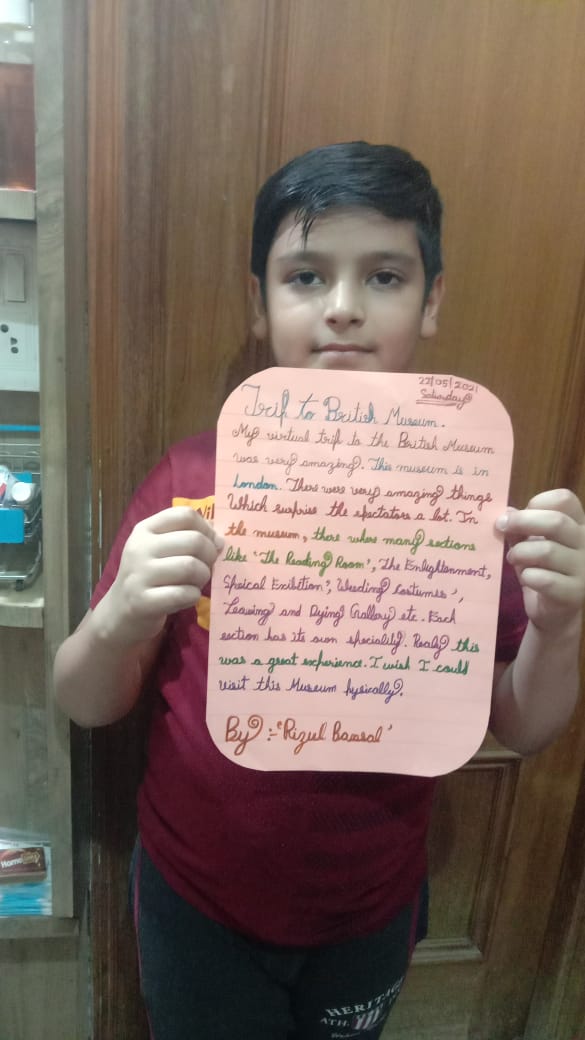 22/05/2021
Saturday
Trip to British Museum.
My virtual trip to the British Museum
was very amazing. This museum is in
London. There were very amazing things
Which surprise the spectators a lot. In
the museum, there where many sections
like 'The Reading Room', The Enlightenment,
Speical Exibition', Weeding Costumes',
Leaving and Dying Gallery etc. Each
section has its own speciality. Realy this
was a great experience. I wish I could
visit this Museum fysically.
By :- 'Rizul Bansal'
HERITAGE
ATH.
Home